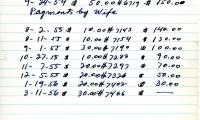 9-24-54 $ 50.00 #6719 $ 150.00
Payments by Wife
8-2-55 $ 10.00 #7143 $ 140.00
8-11-55 $ 10.00 #7154 $ 130.00
9-1-55 $ 30.00 #7190 $ 100.00
10-11-55 $ 10.00 #7222 $ 90.00
11-7-55 $ 20.00 #7297 $ 70.00
12-5-55 $ 20.00 #7328 $ 50.00
1-19-56 $ 20.00 #7402 $ 30.00
3-11-56 $ 30.00 #7466 $